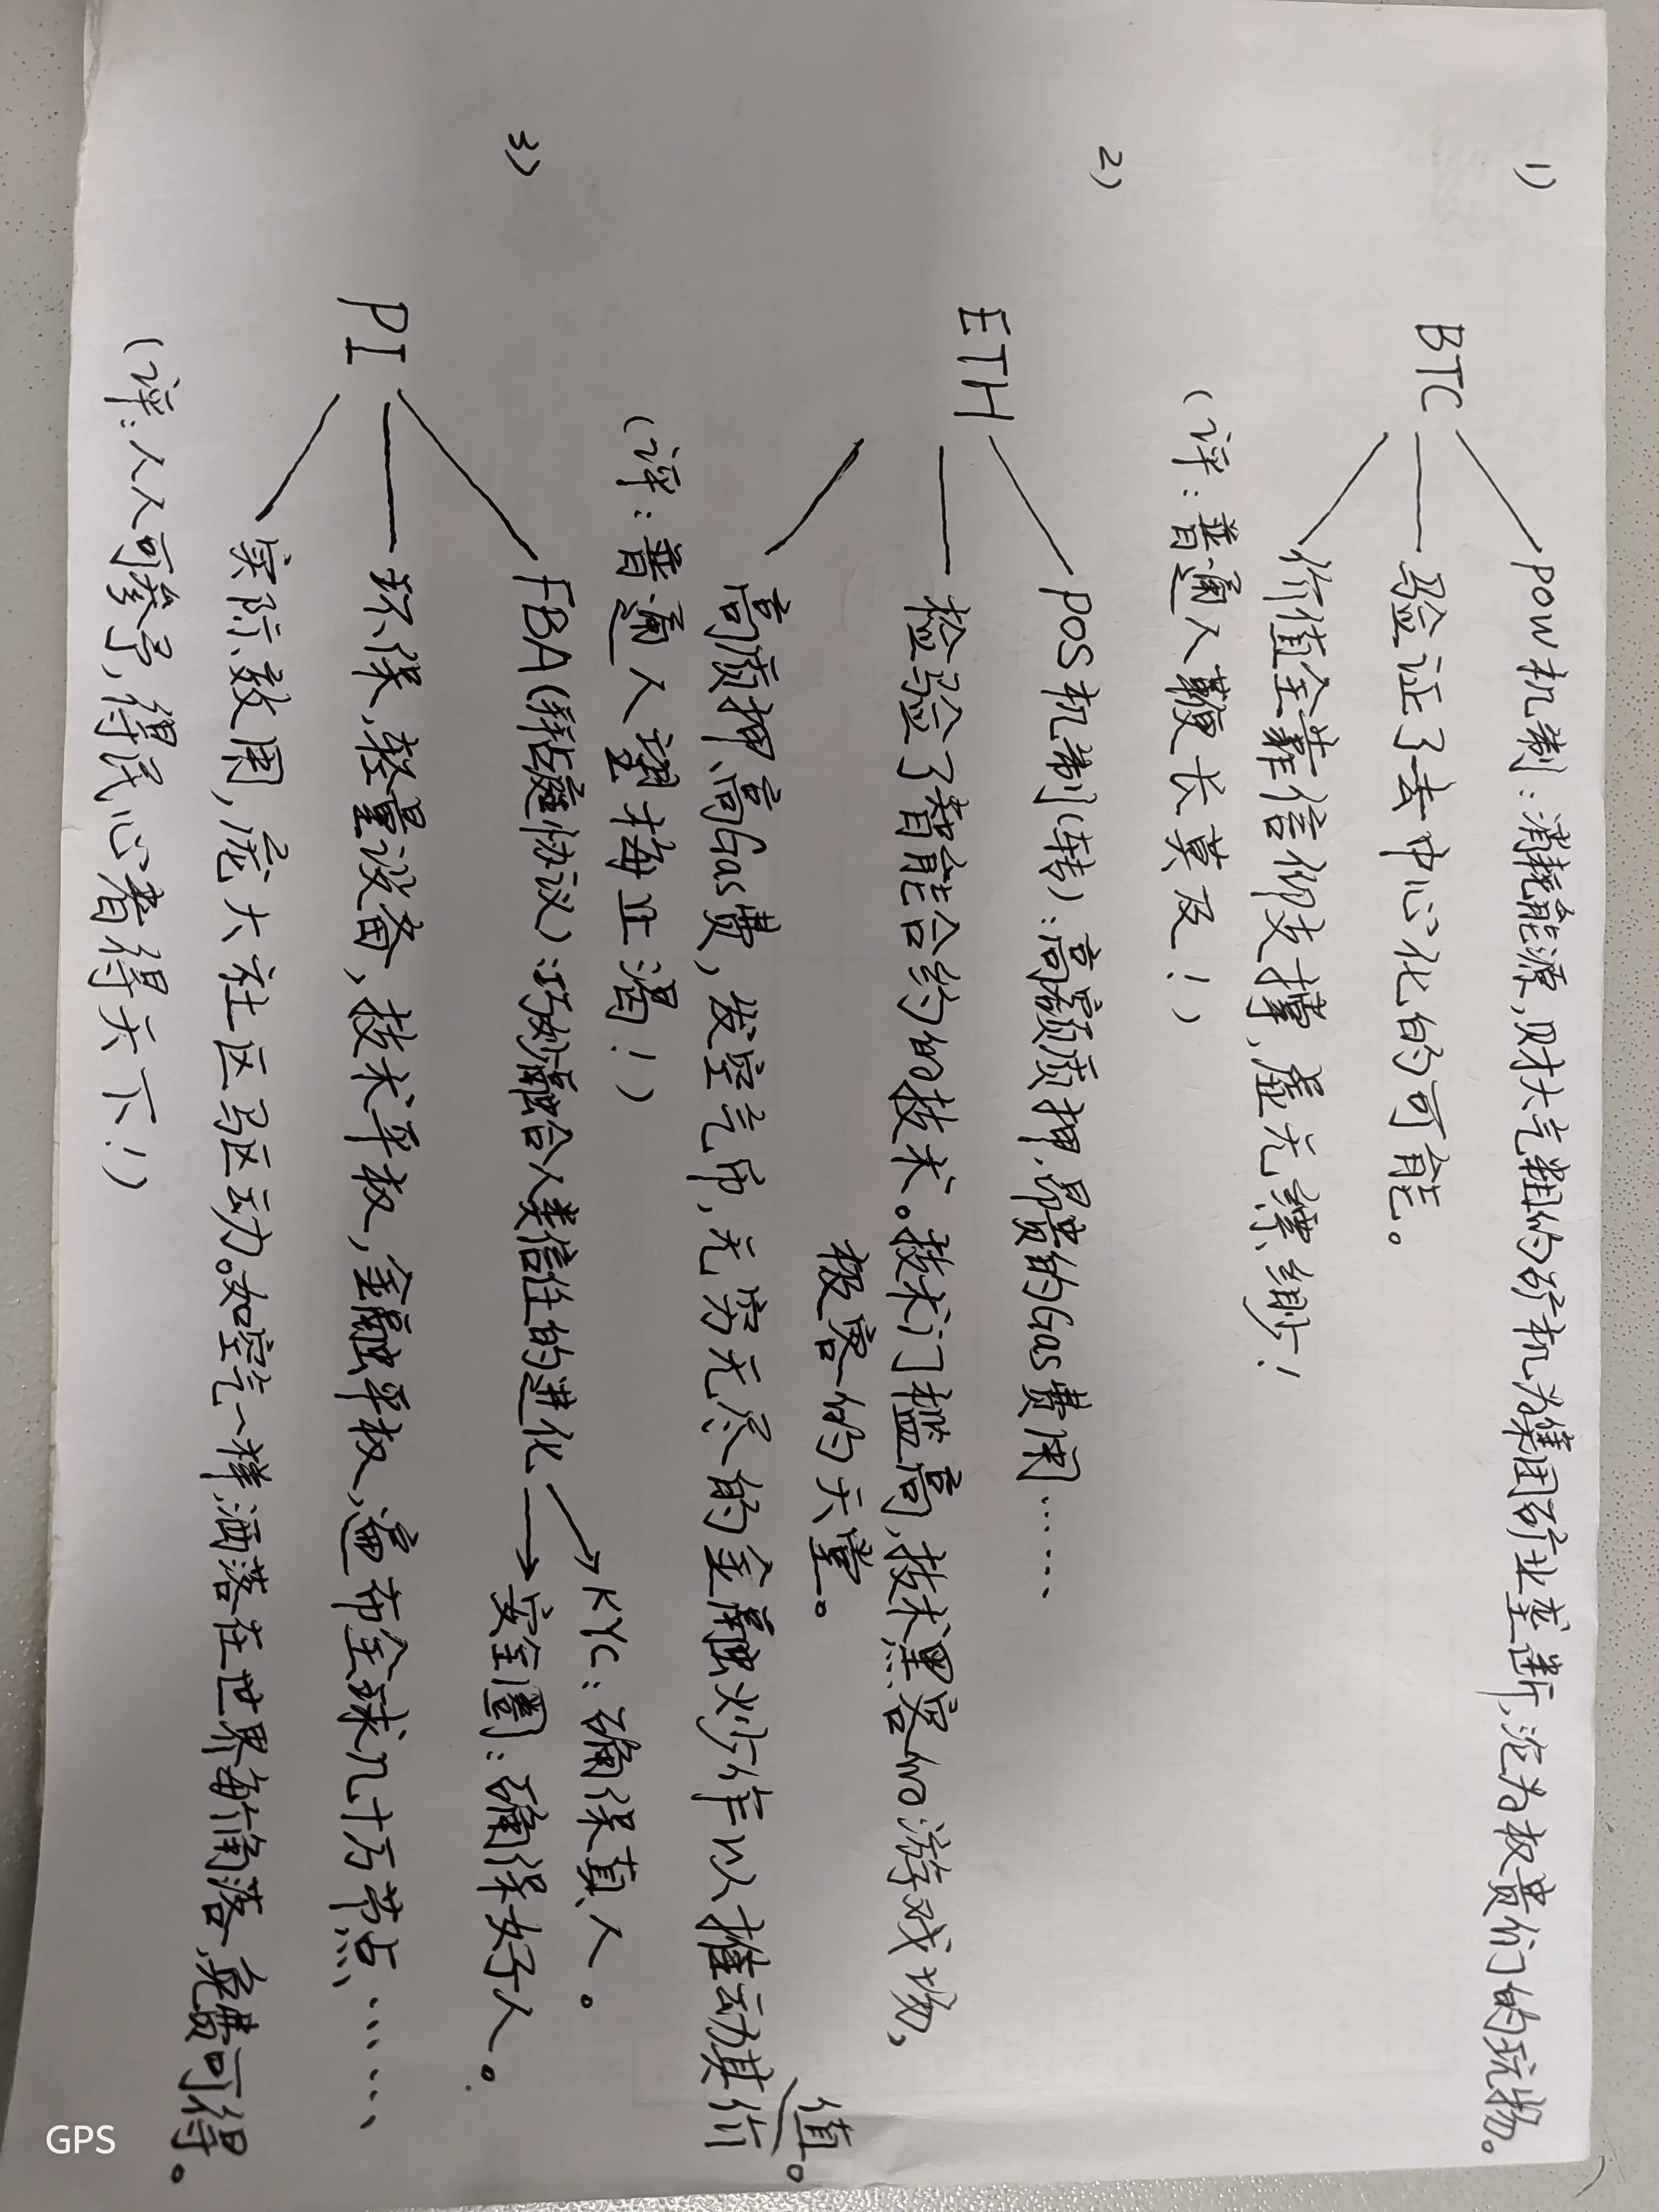 1)
POW机制:消耗能源,财大气粗的矿机为集团矿业垄断,沦为权贵们的玩物。
BTC
验证了去中心化的可能。
价值全靠信仰支撑,虚无缥缈!
(评:普通人鞭长莫及!)
2)
POS机制(转):高额质押,昂贵的Gas费用……
ETH
检验了智能合约的技术。技术门槛高,技术黑客的游戏场,
极客的天堂。
高质押,高Gas费,发空气币,无穷无尽的金融炒作以推动其价
值。
(评:普通人望梅止渴!)
3)
KYC:确保真人。
FBA(拜占庭协议):巧妙融合人类信任的进化
安全圈:确保好人。
PI
环保,轻量设备,技术平权,金融平权,遍布全球几十万节点……
实际效用,庞大社区驱动。如空气一样,洒落在世界每个角落,免费可得。
(评:人人可参予,得民心者得天下!)
GPS